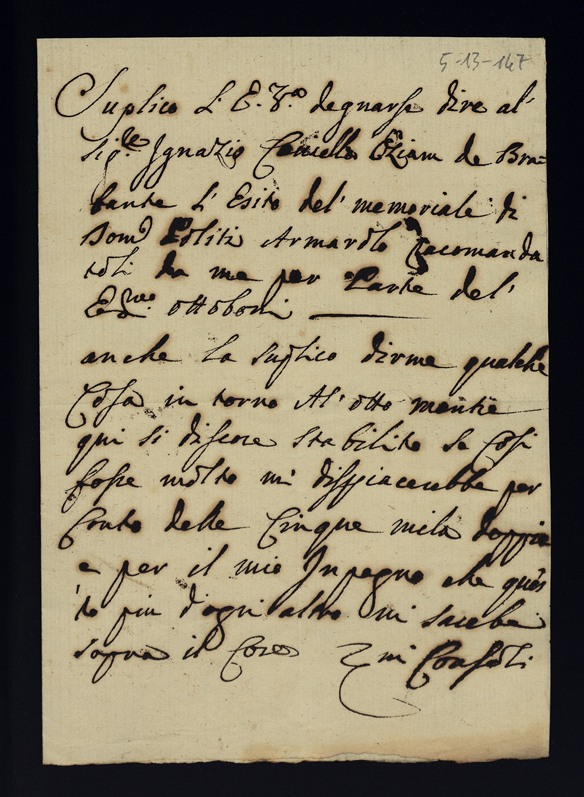 5-13-147
Suplico L'E. V.ª degnarse dire al'
Sig.re Ignazio de Bra=
bante L'Esito del' memoriale di
Dom.º Politi Armarolo racomanda
toli da me per Parte del'
E.mo ottoboni
anche la suplico dirme qualche
Cosa in torno Al' otto mentre
qui si discore stabilito se Cosi
fosse molto mi dispiacerebbe per
Conto delle Cinque mila doppie
e per il mio Inpegno che ques
to piu d'ogni altro mi sarebe
sopra il Core mi Consoli